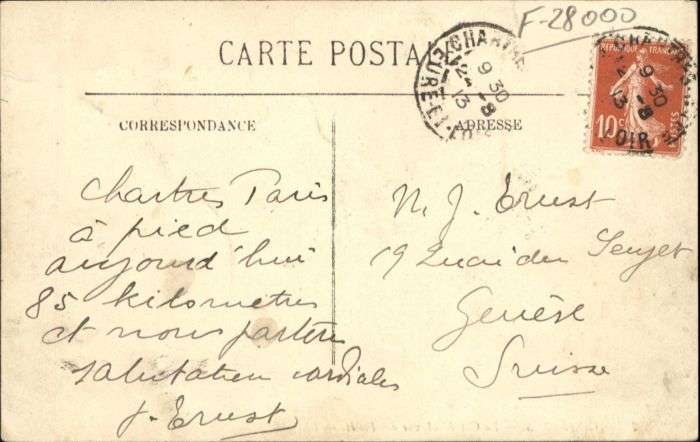 F-28000
CARTE POSTALE
CHARTRES
EURE-ET-LOIR
9 30
12 - 8
13
REPUBLIQUE FRANÇAISE
10c
POSTES
9 30
12 - 8
13
OIR
CORRESPONDANCE
ADRESSE
Chartres Paris
à pied
aujourd'hui
85 kilometres
et nous partons
salutation cordiales
J. Ernst
M. J. Ernst
19 Quai du Seujet
Genève
Suisse